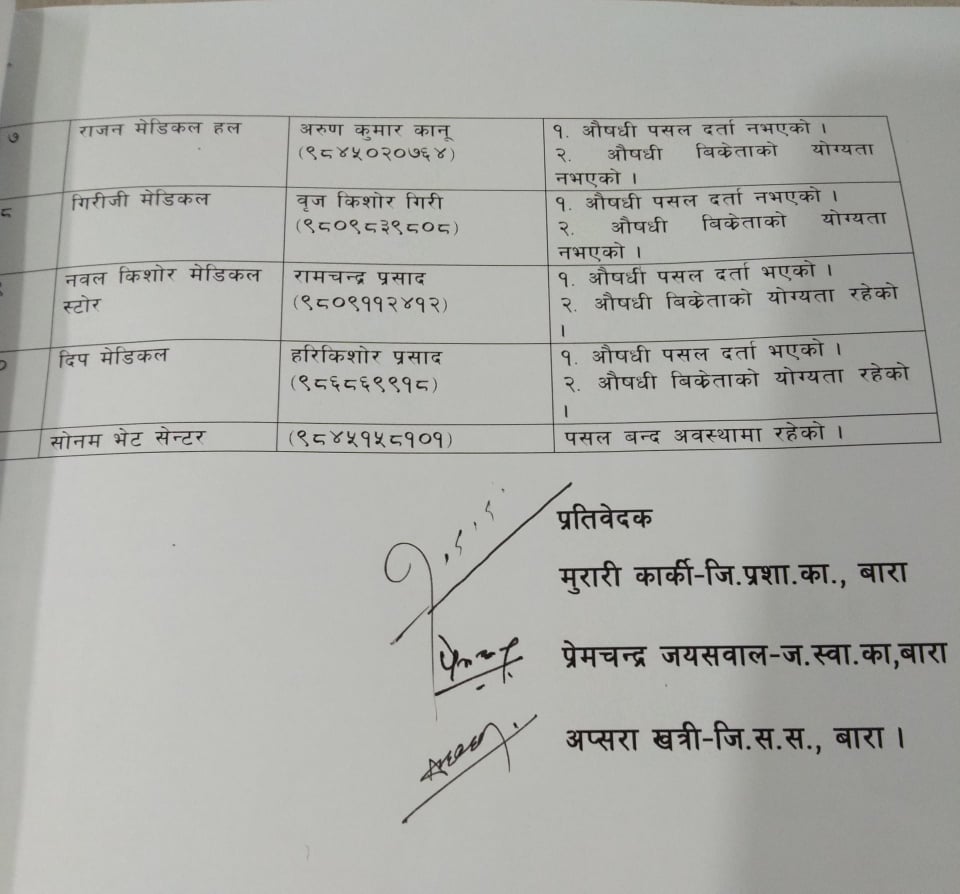 ७ राजन मेडिकल हल अरुण कुमार कानू १. औषधी पसल दर्ता नभएको ।
(९८४५०२०७६४) २. औषधी बिक्रेताको योग्यता
नभएको ।
८ गिरीजी मेडिकल वृज किशोर गिरी १. औषधी पसल दर्ता नभएको ।
(९८०९८३९८०८) २. औषधी बिक्रेताको योग्यता
नभएको ।
नवल किशोर मेडिकल रामचन्द्र प्रसाद १. औषधी पसल दर्ता भएको ।
स्टोर (९८०९११२४१२) २. औषधी बिक्रेताको योग्यता रहेको
।
दिप मेडिकल हरिकिशोर प्रसाद १. औषधी पसल दर्ता भएको ।
(९८६८६९९१८) २. औषधी बिक्रेताको योग्यता रहेको
।
सोनम भेट सेन्टर (९८४५१५८१०१) पसल बन्द अवस्थामा रहेको ।
प्रतिवेदक
मुरारी कार्की-जि.प्रशा.का., बारा
प्रेमचन्द्र जयसवाल-ज.स्वा.का,बारा
अप्सरा खत्री-जि.स.स., बारा ।